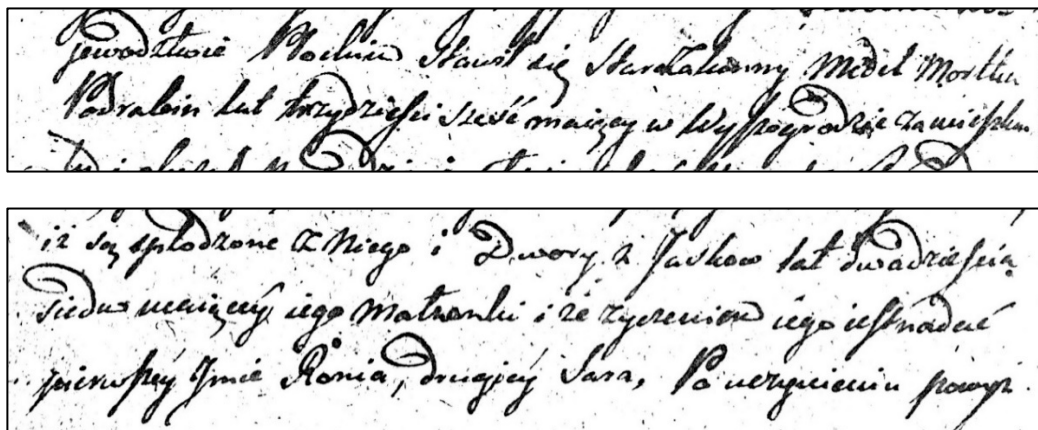 jewodztwie Płockim Stawił się Starozakonny Medel Mortka
Podrabin lat trzydziesci sześć maiący w Wyszogrodzie zamieszkm
iż są spłodzone z Niego i Dwory z Jaskow lat dwadzieścia
siedm maiącey iego małżonki i że życzeniem iego iest nadać
pierwszey Jmie Ronia, drugiey Sara, Po uczynieniu powyż